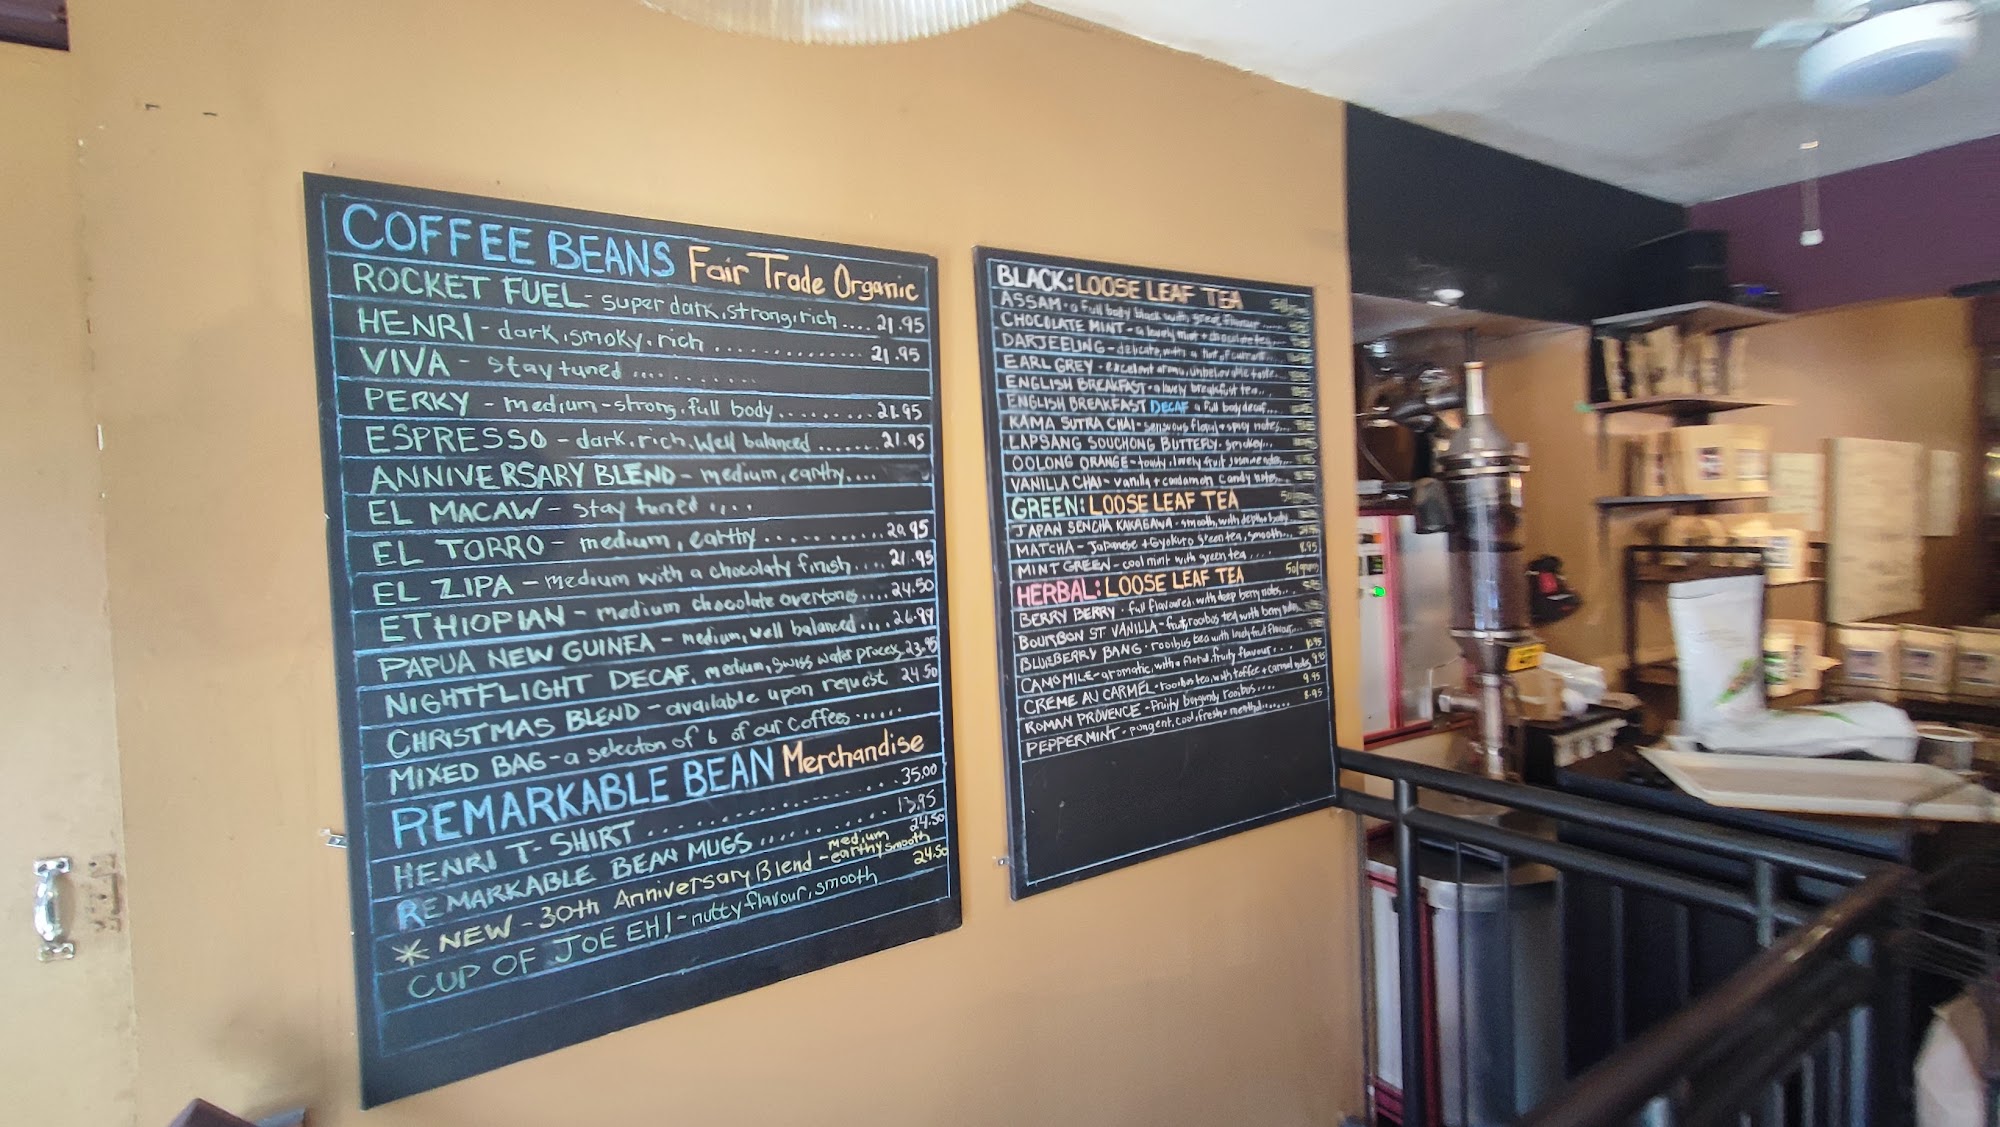 COFFEE BEANS Fair Trade Organic
ROCKET FUEL - super dark, strong, rich .... 21.95
HENRI - dark, smoky, rich .............. 21.95
VIVA - stay tuned ...........
PERKY - medium-strong, full body ......... 21.95
ESPRESSO - dark, rich, well balanced ....... 21.95
ANNIVERSARY BLEND - medium, earthy....
EL MACAW - stay tuned ....
EL TORRO - medium, earthy ........... 20.95
EL ZIPA - medium with a chocolaty finish .... 21.95
ETHIOPIAN - medium chocolate overtones .... 24.50
PAPUA NEW GUINEA - medium, well balanced .... 26.99
NIGHTFLIGHT DECAF. medium, swiss water process 23.95
CHRISTMAS BLEND - available upon request 24.50
MIXED BAG - a selection of 6 of our coffees ......
REMARKABLE BEAN Merchandise
HENRI T-SHIRT ............... 35.00
REMARKABLE BEAN MUGS ......... 13.95
* NEW - 30th Anniversary Blend - medium earthy smooth 24.50
CUP OF JOE EH! - nutty flavour, smooth 24.50
BLACK: LOOSE LEAF TEA
ASSAM - a full body black with great flavour
CHOCOLATE MINT - a lovely mint + chocolate tea
DARJEELING - delicate, with a hint of currant
EARL GREY - excellent aroma, unbelievable taste
ENGLISH BREAKFAST - a lovely breakfast tea...
ENGLISH BREAKFAST DECAF a full body decaf...
KAMA SUTRA CHAI - sensuous floral + spicy notes...
LAPSANG SOUCHONG BUTTEFLY. smokey...
OOLONG ORANGE - lovely fruit jasmine notes...
VANILLA CHAI - vanilla + cardamon candy notes...
GREEN: LOOSE LEAF TEA
JAPAN SENCHA KAKAGAWA - smooth, with depth + body
MATCHA - Japanese + Gyokuro green tea, smooth...
MINT GREEN - cool mint with green tea .... 8.95
HERBAL: LOOSE LEAF TEA 50/grams
BERRY BERRY - full flavoured, with deep berry notes...
BOURBON ST VANILLA - fruity rooibos tea with berry notes
BLUEBERRY BANG - rooibus tea with lovely fruit flavour...
CAMOMILE - aromatic, with a floral, fruity flavour ... 10.95
CREME AU CARMEL - rooibos tea, with toffee + carmel notes 9.95
ROMAN PROVENCE - fruity burgundy rooibus .... 9.95
PEPPERMINT - pungent, cool, fresh + menthol ....... 8.95